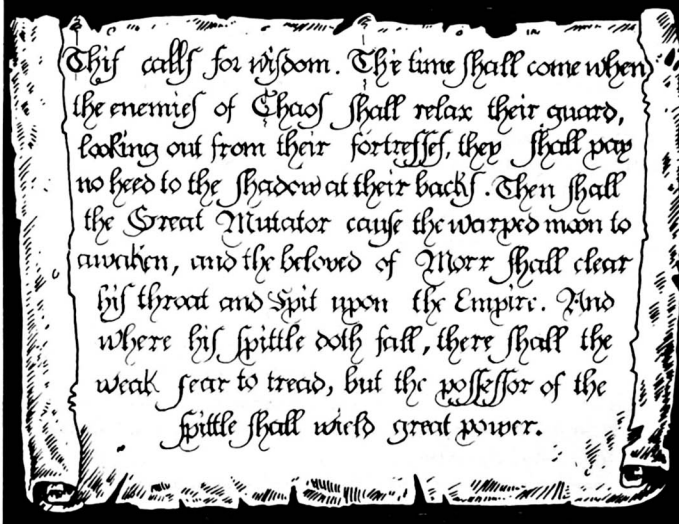 This calls for wisdom. The time shall come when
the enemies of Chaos shall relax their guard,
looking out from their fortresses, they shall pay
no heed to the shadow at their backs. Then shall
the Great Mutator cause the warped moon to
awaken, and the beloved of Morr shall clear
his throat and Spit upon the Empire. And
where his spittle doth fall, there shall the
weak fear to tread, but the possessor of the
spittle shall wield great power.